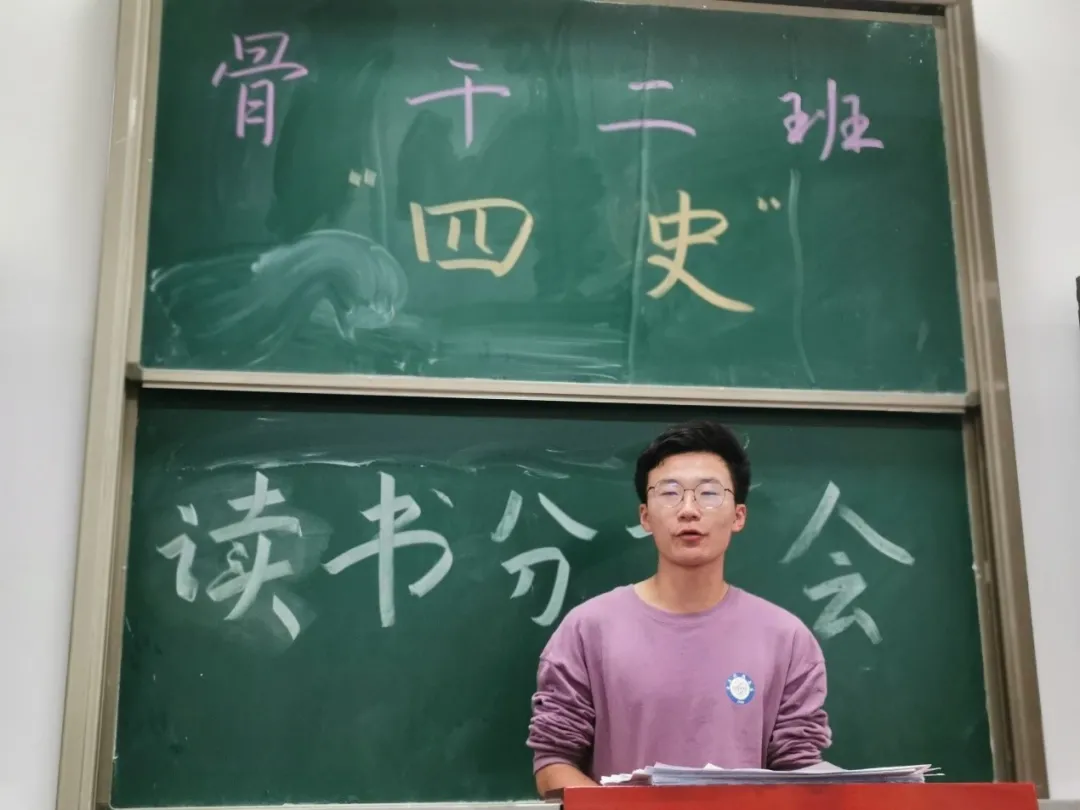 骨干二班
“四史”
读书分 会